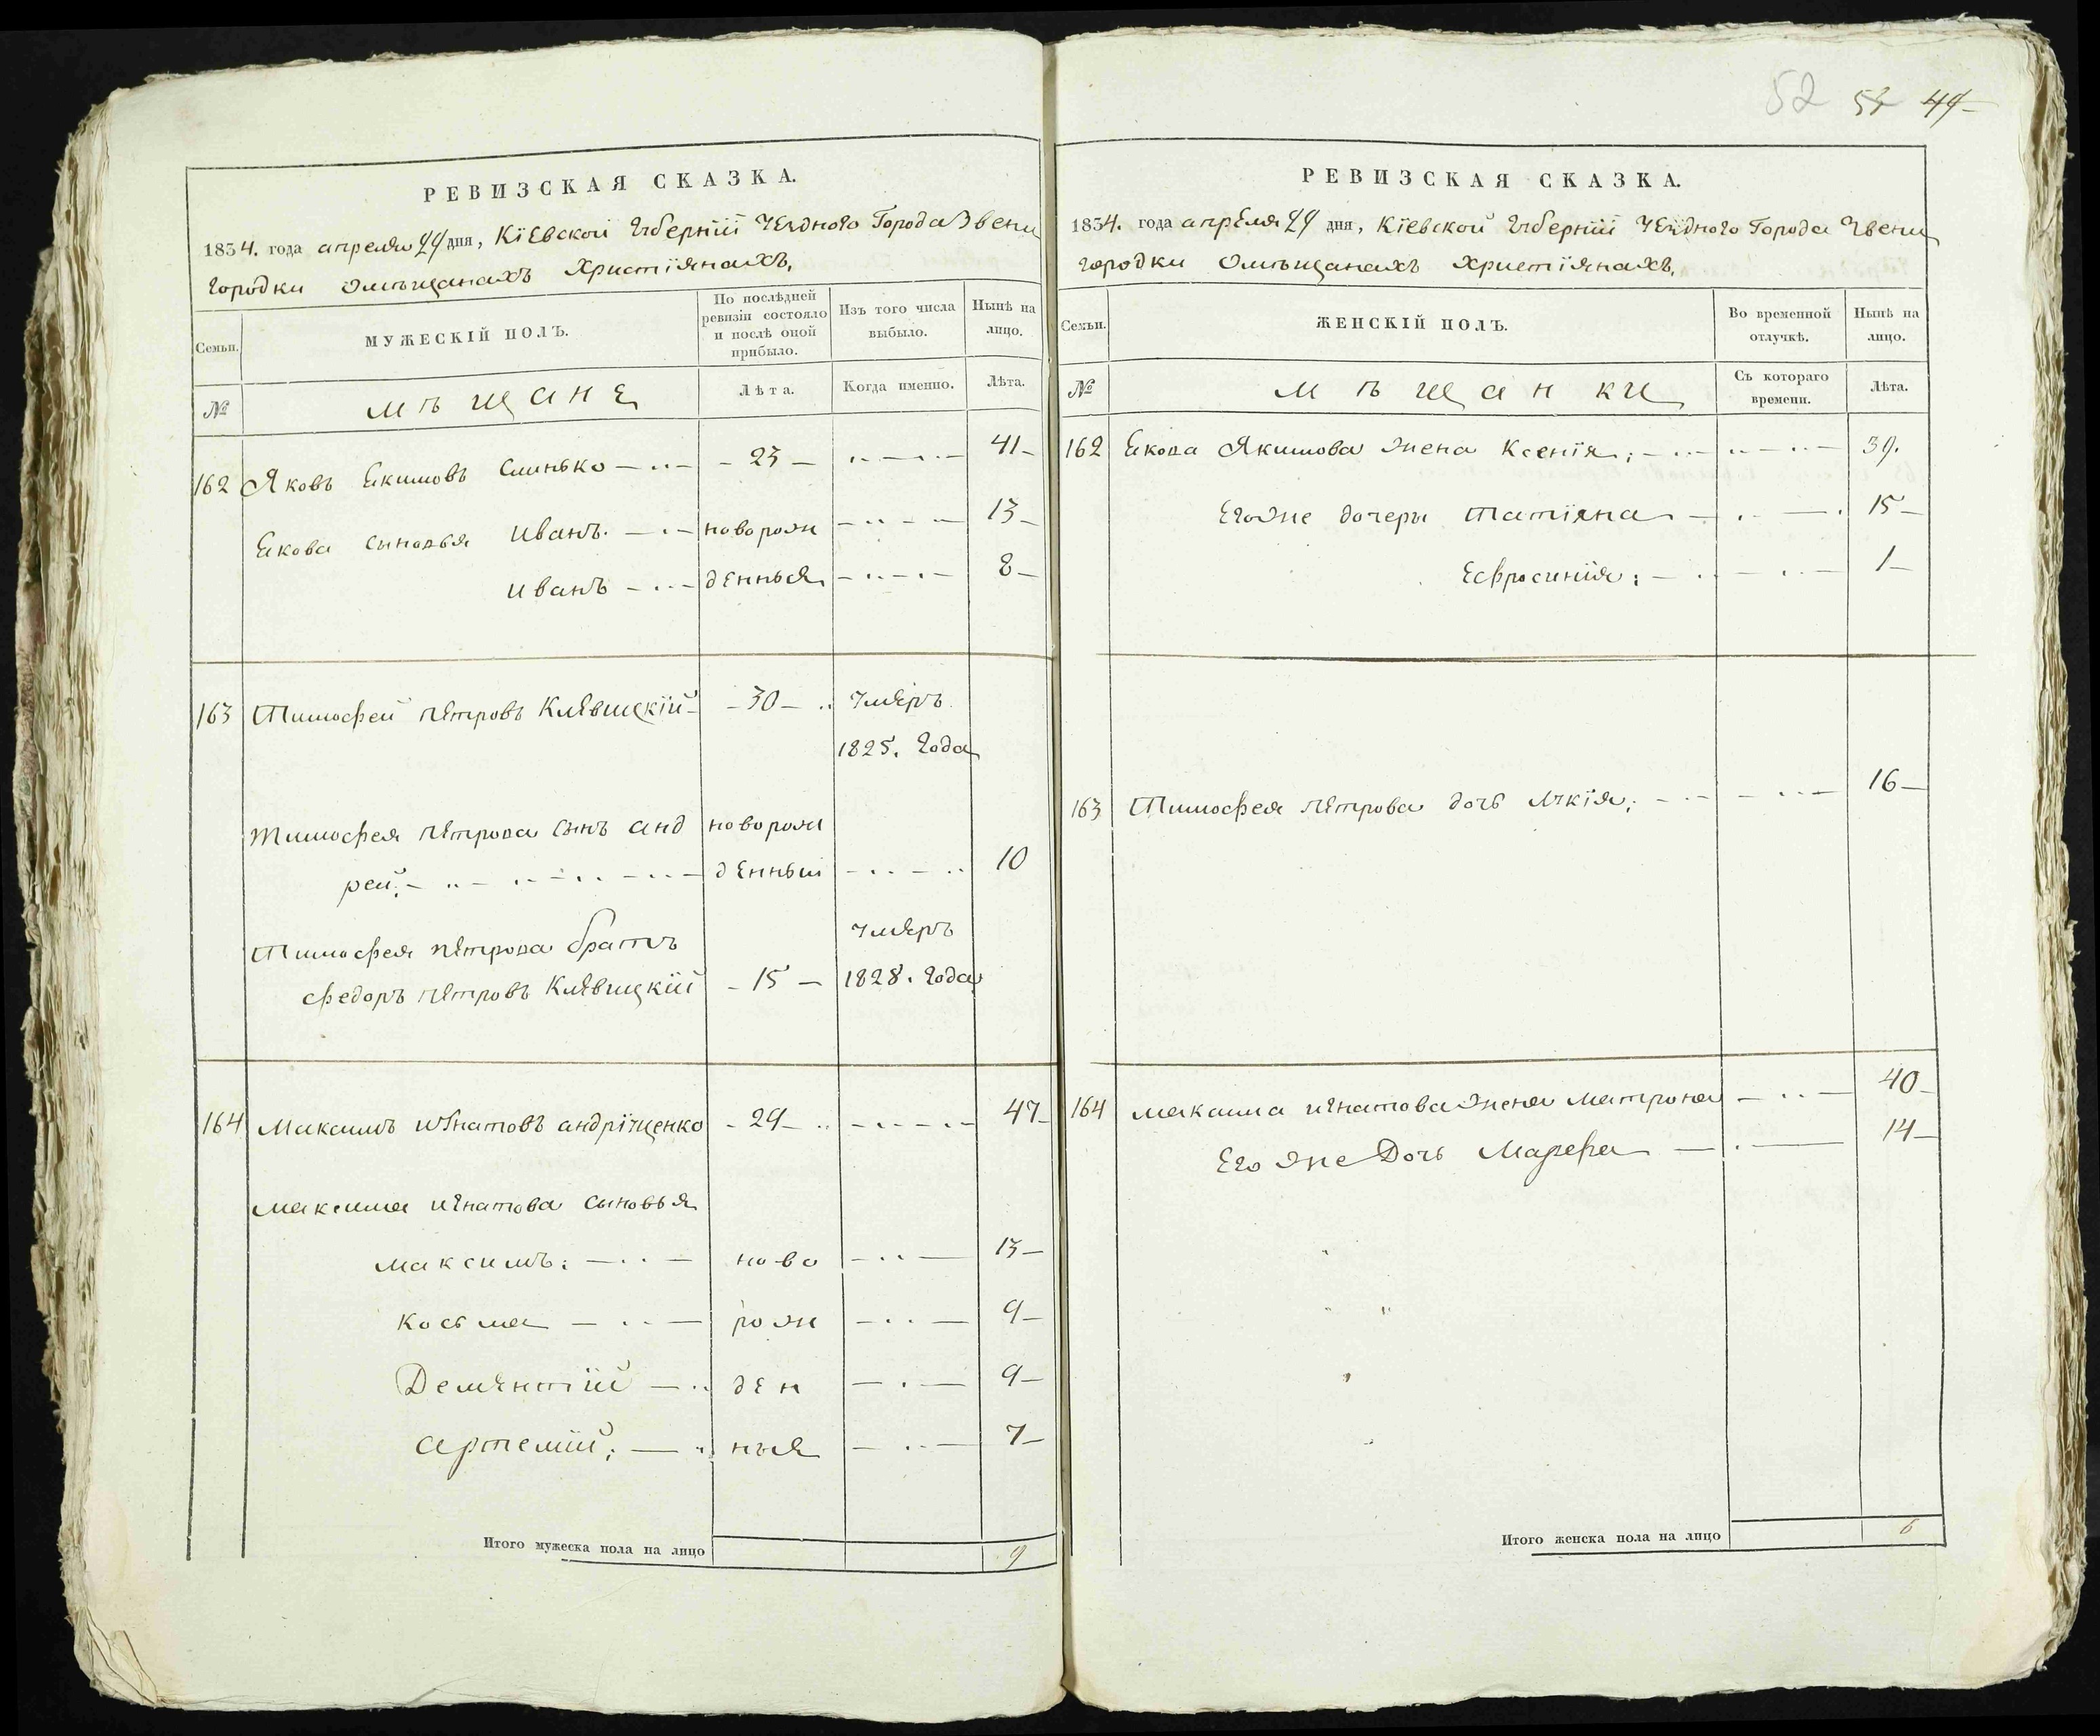 52 44
РЕВИЗСКАЯ СКАЗКА.
1834. года апреля 29 дня, Кіевской Губерніи Уезднаго Города Звени
городки омѣщанахъ христіянахъ.
Семьи.
МУЖЕСКІЙ ПОЛЪ.
По послѣдней ревизіи состояло и послѣ оной прибыло.
Изъ того числа выбыло.
Нынѣ на лицо.
№
мѣщане
Лѣта.
Когда именно.
Лѣта.
162 Яковъ Екимовъ Слинько - 23 - 41
Екова сыновья Иванъ новорож 13
Иванъ денныя 8
163 Тимофей Петровъ Клевицкій - 30 - умеръ
1825. Года
Тимофея Петрова сынъ анд новорож
рей денный 10
Тимофея Петрова братъ умеръ
федоръ Петровъ Клевицкій - 15 - 1828. Года
164 Максимъ Игнатовъ андріущенко - 29 - 47
максима игнатова сыновья
максимъ ново 13
косьма рож 9
Дементій ден 9
артемій ныя 7
Итого мужеска пола на лицо 9
РЕВИЗСКАЯ СКАЗКА.
1834. года апреля 29 дня, Кіевской Губерніи Уезднаго Города Звени
городки омѣщанахъ христіянахъ.
Семьи.
ЖЕНСКІЙ ПОЛЪ.
Во временной отлучкѣ.
Нынѣ на лицо.
№
мѣщанки
Съ котораго времени.
Лѣта.
162 Екова Якимова жена Ксенія 39.
Егоже дочери татіяна 15
Ефросинія 1
163 Тимофея Петрова дочь 16
164 максима игнатова жена матрона 40
Его же Дочь Марфа 14
Итого женска пола на лицо 6